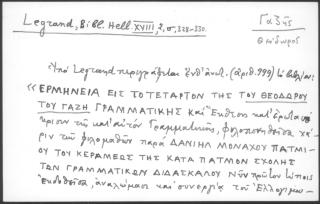 Legrand, Bibl. Hell XVIII, 2, σ, 328-330.
Γαζῆς
Θεόδωρος
Ὑπὸ Legrand περιγράφεται ἐνθ' ἀνωτ. (ἀριθ. 999) τὸ βιβλίον:
"ΕΡΜΗΝΕΙΑ ΕΙΣ ΤΟ ΤΕΤΑΡΤΟΝ ΤΗΣ ΤΟΥ ΘΕΟΔΩΡΟΥ
ΤΟΥ ΓΑΖΗ ΓΡΑΜΜΑΤΙΚΗΣ καὶ Ἔκθεσις κατ' ἐρωταπό
κρισιν τῆς κατ' αὐτὸν Γραμματικῆς, φιλοπονηθεῖσα χά-
ριν τῶν φιλομαθῶν παρὰ ΔΑΝΙΗΛ ΜΟΝΑΧΟΥ ΠΑΤΜΙ-
ΟΥ ΤΟΥ ΚΕΡΑΜΕΩΣ ΤΗΣ ΚΑΤΑ ΠΑΤΜΟΝ ΣΧΟΛΗΣ
ΤΩΝ ΓΡΑΜΜΑΤΙΚΩΝ ΔΙΔΑΣΚΑΛΟΥ Νῦν πρῶτον τύποις
ἐκδοθεῖσα, ἀναλώμασι καὶ συνεργίᾳ τοῦ Ἐλλογιμω-